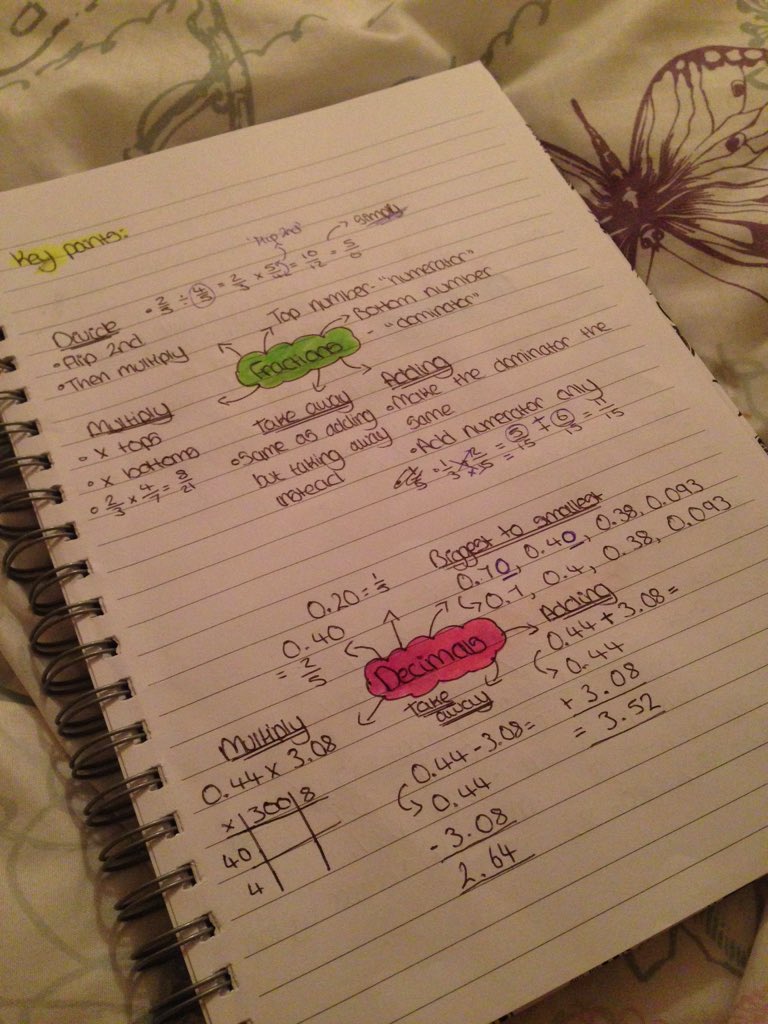 Key points:
"flip 2nd"
simplify
• 2/3 ÷ 4/5 = 2/3 × 5/4 = 10/12 = 5/6
Divide
• Flip 2nd
• Then multiply
Top number - "numerator"
Bottom number
- "dominator"
Fractions
Multiply
• × tops
• × bottoms
• 2/3 × 4/7 = 8/21
Take away
• Same as adding
but taking away
instead
Adding
• Make the dominator the
same
• Add numerator only
= 5/15 + 6/15 = 11/15
Biggest to smallest
0.70, 0.40, 0.38, 0.093
0.7, 0.4, 0.38, 0.093
0.20 = 1/5
0.40
= 2/5
Decimals
Adding
0.44 + 3.08 =
0.44
+ 3.08
= 3.52
Take
away
0.44 - 3.08 =
0.44
- 3.08
2.64
Multiply
0.44 × 3.08
× | 300 | 8
40
4